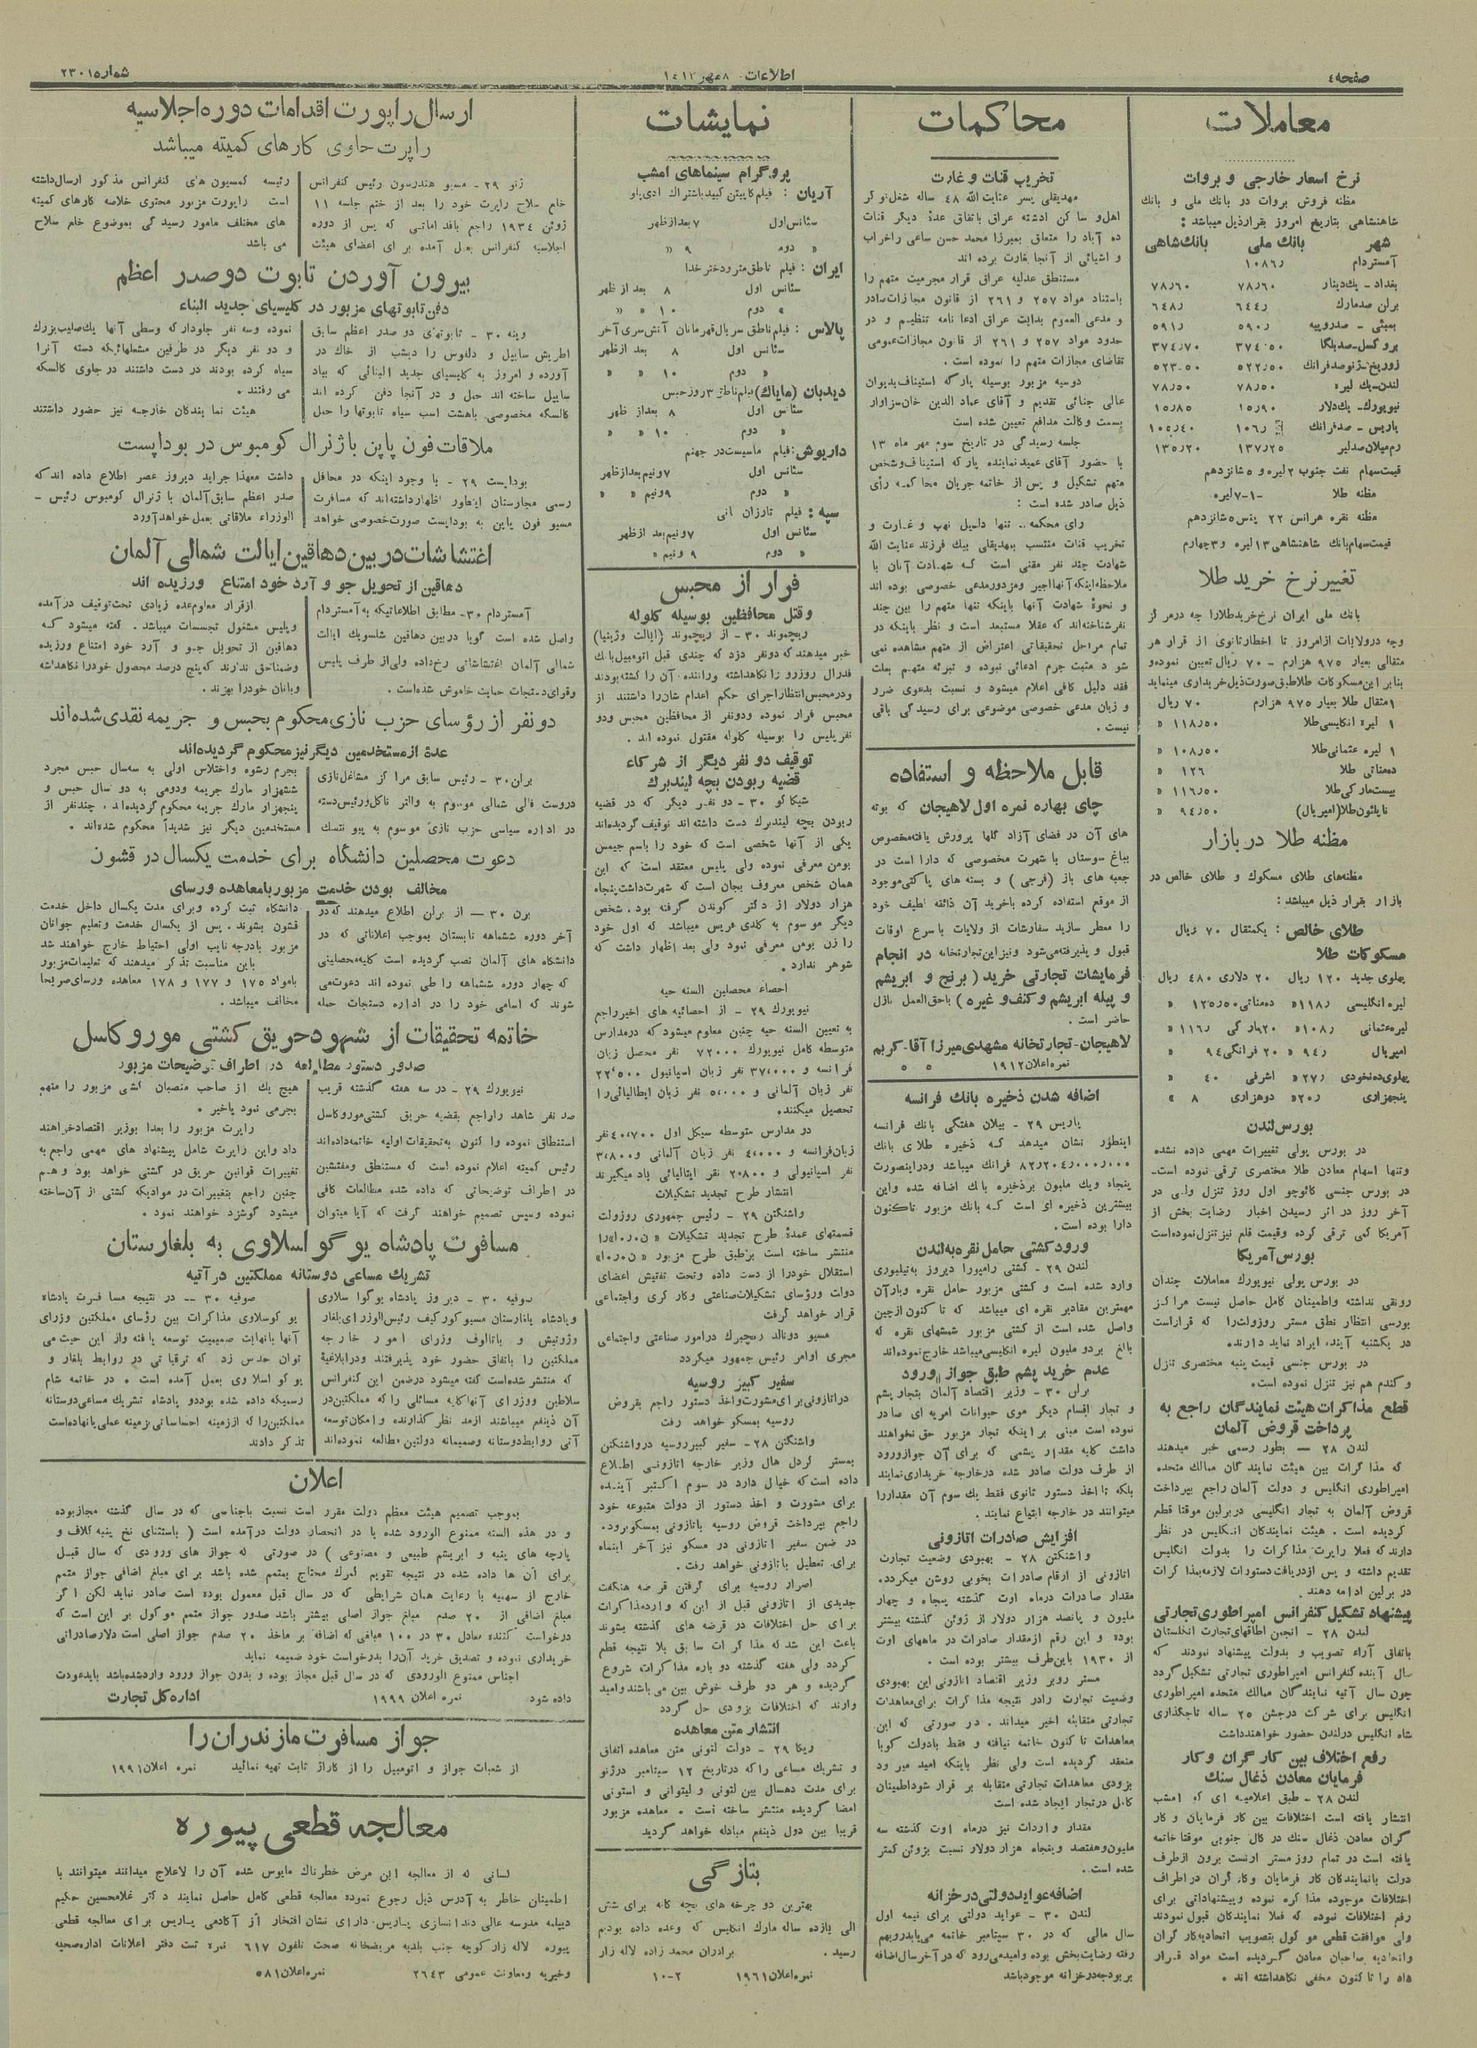 صفحه٤
اطلاعات
شماره ٢٣٠١
معاملات
نرخ اسعار خارجی و بروات
مظنه فروش بروات در بانك ملی و بانك
شاهنشاهی بتاریخ امروز بقرارذیل میباشد :
شهر بانك ملی بانك شاهی
آمستردام ١٠٨٦ر
بغداد - یك‌دینار ٧٨ر٦٠ ٧٨ر٦٠
برلن صدمارك ٦٤٤ر ٦٤٨ر
بمبئی - صدروپیه ٥٩٠ر ٥٩١ر
بروكسل-صدبلگا ٣٧٤ر٥٠ ٣٧٤ر٧٠
زوریخ-ژنو صدفرانك ٥٢٢ر٥٠ ٥٢٣ر٥٠
لندن-یك لیره ٧٨ر٥٠ ٧٨ر٥٠
نیویورك-یك‌دلار ١٥ر٩٠ ١٥ر٨٥
پاریس - صدفرانك ١٠٦ر ١٠٥ر٤٠
رم میلان صدلیر ١٣٧ر٢٥ ١٣٥ر٢٠
قیمت‌سهام نفت جنوب ٢لیره و ٥ شانزدهم
مظنه طلا ٧-١-٠ لیره
مظنه نقره هرانس ٢٢ پنس ٥ شانزدهم
قیمت‌سهام‌بانك شاهنشاهی ١٣لیره و ٣چهارم
تغییر نرخ خرید طلا
بانك ملی ایران نرخ خریدطلارا چه درمركز
وچه درولایات ازامروز تا اخطارثانوی از قرار هر
مثقالی بعیار ٩٧٥ هزارم - ٧٠ ریال تعیین نموده و
بنابر این مسكوكات طلاطبق صورت ذیل خریداری مینماید
١مثقال طلا بعیار ٩٧٥ هزارم ٧٠ ریال
١ لیره انگلیسی‌طلا ١١٨ر٥٠ «
١ لیره عثمانی‌طلا ١٠٨ر٥٠ «
ده‌مناتی طلا ١٢٦ «
بیست‌ماركی‌طلا ١١٦ر٥٠ «
ناپلئون‌طلا(امپریال) ٩٤ر٥٠ «
مظنه طلا در بازار
مظنه‌های طلای مسكوك و طلای خالص در
بازار بقرار ذیل میباشد :
طلای خالص : یكمثقال ٧٠ ریال
مسكوكات طلا
پهلوی جدید ١٢٠ ریال ٢٠ دلاری ٤٨٠ ریال
لیره‌انگلیسی ١١٨ر« ده‌مناتی ١٢٥ر٥٠ «
لیره‌عثمانی ١٠٨ر« ٢٠ماركی ١١٦ر «
امپریال ٩٤ر « ٢٠ فرانگی ٩٤ «
پهلوی‌ده‌نخودی ٢٧ر« اشرفی ٤٠ «
پنجهزاری ٢٠ر« دوهزاری ٨ «
بورس‌لندن
در بورس پولی تغییرات مهمی داده نشده
وتنها اسهام معادن طلا مختصری ترقی نموده است-
در بورس جنسی كائوچو اول روز تنزل ولی در
آخر روز در اثر رسیدن اخبار رضایت بخش از
آمریكا كمی ترقی كرده وقیمت قلع نیز تنزل نموده‌است
بورس‌آمریكا
در بورس پولی نیویورك معاملات چندان
رونقی نداشته واطمینان كامل حاصل نیست مراكز
بورسی انتظار نطق مستر روزولت‌را كه قراراست
در یكشنبه آینده ایراد نماید دارند.
در بورس جنسی قیمت پنبه مختصری تنزل
وگندم هم نیز تنزل نموده است.
قطع مذاكرات هیئت نمایندگان راجع به
پرداخت قروض آلمان
لندن ٢٨ — بطور رسمی خبر میدهند
كه مذاكرات بین هیئت نمایندگان ممالك متحده
امپراطوری انگلیس و دولت آلمان راجع بپرداخت
قروض آلمان به تجار انگلیسی دربرلین موقتا قطع
گردیده است . هیئت نمایندگان انگلیس در نظر
دارند كه فعلا راپرت مذاكرات را بدولت انگلیس
تقدیم داشته و پس ازدریافت دستورات لازمه بمذاكرات
در برلین ادامه دهند .
پیشنهاد تشكیل كنفرانس امپراطوری تجارتی
لندن ٢٨ - انجمن اطاقهای تجارت انگلستان
باتفاق آراء تصویب و بدولت پیشنهاد نمودند كه
سال آینده كنفرانس امپراطوری تجارتی تشكیل گردد
چون سال آتیه نمایندگان ممالك متحده امپراطوری
انگلیس برای شركت درجشن ٢٥ ساله تاجگذاری
شاه انگلیس درلندن حضور خواهندداشت
رفع اختلاف بین كارگران وكار
فرمایان معادن ذغال سنك
لندن ٢٨ - طبق اعلامیه ای كه امشب
انتشار یافته است اختلافات بین كارفرمایان و كار
گران معادن ذغال سنك در گال جنوبی موقتا خاتمه
یافته است در تمام روز مستر ارنست برون ازطرف
دولت بانمایندگان كارفرمایان وكارگران در اطراف
اختلافات موجوده مذاكره نموده وپیشنهاداتی برای
رفع اختلافات نموده كه فعلا نمایندگان قبول نمودند
ولی موافقت قطعی موكول بتصویب اتحادیه‌كارگران
واتحادیه صاحبان معادن گردیده است مواد قرار
داد را تاكنون مخفی نگاهداشته اند .
محاكمات
تخریب قنات و غارت
مهدیقلی پسر عنایت الله ٤٨ ساله شغل نوكر
اهل و ساكن ادشته عراق باتفاق عدهٔ دیگر قنات
ده آباد را متعلق بمیرزا محمد حسن ساعی راخراب
و اشیائی از آنجا بغارت برده اند
مستنطق عدلیه عراق قرار مجرمیت متهم را
باستناد مواد ٢٥٧ و ٢٦١ از قانون مجازات صادر
و مدعی العموم بدایت عراق ادعا نامه تنظیم و در
حدود مواد ٢٥٧ و ٢٦١ از قانون مجازات عمومی
تقاضای مجازات متهم را نموده است .
دوسیه مزبور بوسیله پاركه استیناف بدیوان
عالی جنائی تقدیم و آقای عماد الدین خان سزاوار
بسمت وكالت مدافع تعیین شده است
جلسه رسیدگی در تاریخ سوم مهر ماه ١٣
با حضور آقای عمید نماینده پاركه استیناف و شخص
متهم تشكیل و پس از خاتمه جریان محاكمه رأی
ذیل صادر شده است :
رای محكمه .. تنها دلیل نهب و غارت و
تخریب قنات منتسب بمهدیقلی بیك فرزند عنایت الله
شهادت چند نفر مقنی است كه شهادت آنان با
ملاحظه اینكه آنها اجیر ومزدور مدعی خصوصی بوده اند
و نحوهٔ شهادت آنها باینكه تنها متهم را بین چند
نفر شناخته‌اند كه عقلا مستبعد است و نظر باینكه در
تمام مراحل تحقیقاتی اعتراض از متهم مشاهده نمی
شود مثبت جرم ادعائی نبوده و تبرئه متهم بعلت
فقد دلیل كافی اعلام میشود و نسبت بدعوی ضرر
و زیان مدعی خصوصی موضوعی برای رسیدگی باقی
نیست .
قابل ملاحظه و استفاده
چای بهاره نمره اول لاهیجان كه بوته
های آن در فضای آزاد گلها پرورش یافته مخصوص
بباغ سوستان با شهرت مخصوصی كه دارا است در
جعبه های باز (فرجی) و بسته های پاكتی موجود
از موقع استفاده كرده باخرید آن ذائقه لطیف خود
را معطر سازید سفارشات از ولایات با سرع اوقات
قبول و پذیرفته میشود ونیز این تجارتخانه در انجام
فرمایشات تجارتی خرید ( برنج و ابریشم
و پیله ابریشم وكنف وغیره ) باحق العمل نازل
حاضر است .
لاهیجان-تجارتخانه مشهدی میرزا آقا-كریم
نمره‌اعلان ١٩١٢ ٥ ٥
اضافه شدن ذخیره بانك فرانسه
پاریس ٢٩ - بیلان هفتگی بانك فرانسه
اینطور نشان میدهد كه ذخیره طلای بانك
٨٢ر٢٠٤ر٠٠٠ر٠٠٠ فرانك میباشد ودراینصورت
پنجاه ویك ملیون برذخیره بانك اضافه شده واین
بیشترین ذخیره ای است كه بانك مزبور تاكنون
دارا بوده است .
ورود كشتی حامل نقره به لندن
لندن ٢٩ - كشتی رامپورا دیروز به تیلبوری
وارد شده است و كشتی مزبور حامل نقره وبارآن
مهمترین مقادیر نقره ای میباشد كه تاكنون ازچین
واصل شده است از كشتی مزبور شمشهای نقره كه
بالغ بردو ملیون لیره انگلیسی‌میباشد خارج نموده‌اند
عدم خرید پشم طبق جواز ورود
برلن ٣٠ - وزیر اقتصاد آلمان بتجار پشم
و تجار اقسام دیگر موی حیوانات امریه ای صادر
نموده است مبنی براینكه تجار مزبور حق نخواهند
داشت كلیه مقدار پشمی كه برای آن جواز ورود
از طرف دولت صادر شده درخارجه خریداری نمایند
بلكه تا اخذ دستور ثانوی فقط یك سوم آن مقداررا
میتوانند در خارجه ابتیاع نمایند .
افزایش صادرات اتازونی
واشنگتن ٢٨ - بهبودی وضعیت تجارت
اتازونی از ارقام صادرات بخوبی روشن میگردد.
مقدار صادرات درماه اوت گذشته پنجاه و چهار
ملیون و پانصد هزار دولار از ژوئن گذشته بیشتر
بوده و این رقم ازمقدار صادرات در ماههای اوت
از ١٩٣٠ باین‌طرف بیشتر بوده است .
مستر روپر وزیر اقتصاد اتازونی این بهبودی
وضعیت تجارت رادر نتیجه مذاكرات برای معاهدات
تجارتی متقابله اخیر میداند . در صورتی كه این
معاهدات تاكنون خاتمه نیافته و فقط بادولت كوبا
منعقد گردیده است ولی نظر باینكه امید میرود
بزودی معاهدات تجارتی متقابله برقرار شود اطمینان
كامل درتجار ایجاد شده است
مقدار واردات نیز درماه اوت گذشته سه
ملیون وهفتصد وپنجاه هزار دولار نسبت بژوئن كمتر
شده است .
اضافه عواید دولتی در خزانه
لندن ٣٠ - عواید دولتی برای نیمه اول
سال مالی كه در ٣٠ سپتامبر خاتمه می‌یابد رویهم
رفته رضایت‌بخش بوده وامیدمی‌رود كه درآخر سال اضافه
بر بودجه درخزانه موجود باشد
نمایشات
پروگرام سینماهای امشب
آریان : فیلم كاپیتن كبید باشتراك ادی پلو
سئانس اول ٧بعدازظهر
« دوم ٩ «
ایران : فیلم ناطق مترودختر خدا
سئانس اول ٨ بعدازظهر
« دوم ١٠ « «
پالاس : فیلم ناطق سریال قهرمانان آتش سری آخر
سئانس اول ٨ بعدازظهر
« دوم ١٠ « «
دیدبان (مایاك) فیلم ناطق ٣روز حبس
سئانس اول ٨ بعداز ظهر
« دوم ١٠ « «
داریوش : فیلم ماسیست در جهنم
سئانس اول ٧ونیم بعدازظهر
« دوم ٩ونیم « «
سپه : فیلم تارزان
سئانس اول ٧ونیم بعدازظهر
« دوم ٩ ونیم «
فرار از محبس
وقتل محافظین بوسیله گلوله
ریچموند ٣٠ - از ریچموند (ایالت ورژینیا)
خبر میدهند كه دونفر دزد كه چندی قبل اتومبیل بانك
فدرال رزرو را نگاهداشته وراننده آن را كشته بودند
ودرمحبس انتظار اجرای حكم اعدام شان را داشتند از
محبس فرار نموده ودونفر از محافظین محبس ودو
نفرپلیس را بوسیله گلوله مقتول نموده اند .
توقیف دو نفر دیگر از شركاء
قضیه ربودن بچه لیندبرك
شیكاگو ٣٠ - دو نفر دیگر كه در قضیه
ربودن بچه لیندبرك دست داشته اند توقیف گردیده‌اند
یكی از آنها شخصی است كه خود را باسم جیمس
بومن معرفی نموده ولی پلیس معتقد است كه این
همان شخص معروف بجان است كه شهرت داشت پنجاه
هزار دولار از دكتر كوندن گرفته بود. شخص
دیگر موسوم به كلدی هریس میباشد كه اول خود
را زن بومن معرفی نمود ولی بعد اظهار داشت كه
شوهر ندارد .
احصاء محصلین السنه حیه
نیویورك ٢٩ - از احصائیه های اخیر راجع
به تعیین السنه حیه چنین معلوم میشود كه درمدارس
متوسطه كامل نیویورك ٧٢٠٠٠ نفر محصل زبان
فرانسه و ٣٧٫٠٠٠ نفر زبان اسپانیول ٢٢٫٥٠٠
نفر زبان آلمانی و ٥٫٠٠٠ نفر زبان ایطالیائی‌را
تحصیل میكنند.
در مدارس متوسطه سیكل اول ٤٠٫٧٠٠نفر
زبان‌فرانسه و ٤٫٠٠٠ نفر زبان آلمانی و ٣٫٨٠٠
نفر اسپانیولی و ٢٠٨٠٠ نفر ایتالیائی یاد میگیرند
انتشار طرح تجدید تشكیلات
واشنگتن ٢٩ - رئیس جمهوری روزولت
قسمتهای عمدهٔ طرح تجدید تشكیلات « ن‌.ر.ا»را
منتشر ساخته است برطبق طرح مزبور « ن.ر.ا»
استقلال خودرا از دست داده وتحت تفتیش اعضای
دولت ورؤسای تشكیلات صناعتی وكارگری واجتماعی
قرار خواهد گرفت
مسیو دونالد ریچبرك درامور صناعتی واجتماعی
مجری اوامر رئیس جمهور میگردد
سفیر كبیر روسیه
در اتازونی برای مشورت واخذ دستور راجع بقروض
روسیه بمسكو خواهد رفت
واشنگتن ٢٨- سفیر كبیر روسیه درواشنگتن
بمستر كردل هال وزیر خارجه اتازونی اطلاع
داده است كه خیال دارد در سوم اكتبر آینده
برای مشورت و اخذ دستور از دولت متبوعه خود
راجع بپرداخت قروض روسیه باتازونی بمسكو برود.
در ضمن سفیر اتازونی در مسكو نیز آخر اینماه
برای تعطیل باتازونی خواهد رفت .
اصرار روسیه برای گرفتن قرضه هنگفت
جدیدی از اتازونی قبل از این كه وارد مذاكرات
برای حل اختلافات در قرضه های گذشته بشوند
باعث این شد كه مذاكرات سابق بلا نتیجه قطع
گردد ولی هفته گذشته دوباره مذاكرات شروع
گردیده و هر دو طرف خوش بین می باشند وامید
وارند كه اختلافات بزودی حل گردد
انتشار متن معاهده
ریگا ٢٩ - دولت لتونی متن معاهده اتفاق
و تشریك مساعی را كه درتاریخ ١٢ سپتامبر درژنو
برای مدت ده‌سال بین لتونی و لیتوانی و استونی
امضا گردیده منتشر ساخته است . معاهده مزبور
قریبا بین دول ذینفع مبادله خواهد گردید
بتازگی
بهترین دو چرخه های بچه گانه برای شش
الی یازده ساله مارك انگلیس كه وعده داده بودیم
رسید . برادران محمد زاده لاله زار
نمره‌اعلان ١٩٦١ ٢-١٠
ارسال راپورت اقدامات دوره اجلاسیه
راپرت حاوی كارهای كمیته میباشد
ژنو ٢٩ - مسیو هندرسون رئیس كنفرانس
خلع سلاح راپرت خود را بعد از ختم جلسه ١١
ژوئن ١٩٣٤ راجع باقداماتی كه پس از دوره
اجلاسیه كنفرانس بعمل آمده برای اعضای هیئت
رئیسه كمسیون های كنفرانس مذكور ارسال‌داشته
است راپورت مزبور محتوی خلاصه كارهای كمیته
های مختلف مامور رسیدگی بموضوع خلع سلاح
می باشد
بیرون آوردن تابوت دو صدر اعظم
دفن تابوتهای مزبور در كلیسیای جدید البناء
وینه ٣٠ - تابوتهای دو صدر اعظم سابق
اطریش ساییل و دلفوس را دیشب از خاك در
آورده و امروز به كلیسیای جدید البنائی كه بیاد
ساییل ساخته اند حمل و در آنجا دفن كرده اند
كالسكه مخصوصی باهشت اسب سیاه تابوتها را حمل
نموده وسه نفر جلودار كه وسطی آنها یك‌صلیب‌بزرك
و دو نفر دیگر در طرفین مشعلهائیكه دسته آنرا
سیاه كرده بودند در دست داشتند در جلوی كالسكه
می رفتند .
هیئت نمایندگان خارجه نیز حضور داشتند
ملاقات فون پاپن باژنرال كومبوس در بوداپست
بوداپست ٢٩ - با وجود اینكه در محافل
رسمی مجارستان اینطور اظهارداشته‌اند كه مسافرت
مسیو فون پاپن به بوداپست صورت خصوصی خواهد
داشت معهذا جراید دیروز عصر اطلاع داده اند كه
صدر اعظم سابق آلمان با ژنرال كومبوس رئیس -
الوزراء ملاقاتی بعمل خواهدآورد
اغتشاشات دربین دهاقین ایالت شمالی آلمان
دهاقین از تحویل جو و آرد خود امتناع ورزیده اند
آمستردام ٣٠- مطابق اطلاعاتیكه به آمستردام
واصل شده است گویا دربین دهاقین شلسویك ایالت
شمالی آلمان اغتشاشاتی رخ‌داده ولی‌از طرف پلیس
وقوای‌دستجات حمایت خاموش شده‌است .
ازقرار معلوم‌عده زیادی تحت‌توقیف درآمده
وپلیس مشغول تجسسات میباشد . گفته میشود كه
دهاقین از تحویل جو و آرد خود امتناع ورزیده
وضمناحق ندارند كه‌پنج درصد محصول خودرا نگاهداشته
وبانان خودرا بپزند .
دونفر از رؤسای حزب نازی محكوم بحبس و جریمه نقدی شده‌اند
عدهٔ از مستخدمین دیگرنیز محكوم گردیده‌اند
برلن ٣٠ - رئیس سابق مراكز مشاغل نازی
دروست فالی شمالی موسوم به والتر ناگل ورئیس دسته
در اداره سیاسی حزب نازی موسوم به پیو نتسك
بجرم رشوه واختلاس اولی به سه‌سال حبس مجرد
ششهزار مارك جریمه ودومی به دو سال حبس و
پنجهزار مارك جریمه محكوم گردیده‌اند. چندنفر از
مستخدمین دیگر نیز شدیداً محكوم شده‌اند .
دعوت محصلین دانشگاه برای خدمت یكسال در قشون
مخالف بودن خدمت مزبور بامعاهده ورسای
برن ٣٠ — از برلن اطلاع میدهند كه‌در
آخر دوره ششماهه تابستان بموجب اعلاناتی كه در
دانشگاه های آلمان نصب گردیده است كلیه‌محصلینی
كه چهار دوره ششماهه را طی نموده اند دعوت‌می
شوند كه اسامی خود را در اداره دستجات حمله
دانشگاه ثبت كرده وبرای مدت یكسال داخل خدمت
قشون بشوند. پس از یكسال خدمت وتعلیم جوانان
مزبور بادرجه نایب اولی احتیاط خارج خواهند شد
باین مناسبت تذكر میدهند كه تعلیمات‌مزبور
بامواد ١٧٥ و ١٧٧ و ١٧٨ معاهده ورسای صریحا
مخالف میباشد .
خاتمه تحقیقات از شهودحریق كشتی موروكاسل
صدور دستور مطالعه در اطراف توضیحات مزبور
نیویورك ٢٩ - در سه هفته گذشته قریب
صد نفر شاهد راراجع بقضیه حریق كشتی‌موروكاسل
استنطاق نموده وا كنون به‌تحقیقات اولیه خاتمه‌داده‌اند
رئیس كمیته اعلام نموده است كه مستنطق ومفتشین
در اطراف توضیحاتی كه داده شده مطالعات كافی
نموده وسپس تصمیم خواهند گرفت كه آیا میتوان
هیچ یك از صاحب منصبان كشتی مزبور را متهم
بجرمی نمود یاخیر .
راپرت مزبور را بعدا بوزیر اقتصادخواهند
داد واین راپرت شامل پیشنهاد های مهمی راجع به
تغییرات قوانین حریق در كشتی خواهد بود وهم
چنین راجع بتغییرات در موادیكه كشتی از آن‌ساخته
میشود گوشزد خواهند نمود .
مسافرت پادشاه یوگو اسلاوی به بلغارستان
تشریك مساعی دوستانه مملكتین در آتیه
صوفیه ٣٠ - دیروز پادشاه یوگوا سلاوی
وپادشاه بلغارستان مسیو كوركیف رئیس‌الوزرای‌بلغار
وژونیش و باتالوف وزرای امور خارجه
مملكتین را باتفاق حضور خود پذیرفتند ودرابلاغیهٔ
كه منتشر شده‌است گفته میشود درضمن این كنفرانس
سلاطین ووزرای آنها كلیه مسائلی را كه مملكتین‌در
آن ذینفع میباشند ازمد نظر گذارنده و امكان توسعه
آتی روابط دوستانه وصمیمانه دولتین مطالعه نموده‌اند
صوفیه ٣٠ — در نتیجه مسافرت پادشاه
یوگوسلاوی مذاكرات بین رؤسای مملكتین ووزرای
آنها بانهایت صمیمیت توسعه یافته واز این حیث می
توان حدس زد كه ترقیاتی در روابط بلغار و
یوگو اسلاوی بعمل آمده است . در خاتمه شام
رسمیكه داده شده بوددو پادشاه تشریك مساعی دوستانه
مملكتین‌را كه اززمینه احساساتی بزمینه عملی پانهاده‌است
تذكر دادند
اعلان
بموجب تصمیم هیئت معظم دولت مقرر است نسبت باجناسی كه در سال گذشته مجازبوده
و در هذه السنه ممنوع الورود شده یا در انحصار دولت درآمده است ( باستثنای نخ پنبه‌كلاف و
پارچه های پنبه و ابریشم طبیعی و مصنوعی ) در صورتی كه جواز های ورودی كه سال قبل
برای آن ها داده شده در نتیجه تقویم گمرك محتاج بمتمم شده باشد برای مبلغ اضافی جواز متمم
خارج از سهمیه با رعایت همان شرایطی كه در سال قبل معمول بوده است صادر نماید لكن اگر
مبلغ اضافی از ٢٠ صدم مبلغ جواز اصلی بیشتر باشد صدور جواز متمم موكول بر این است كه
درخواست كننده معادل ٣٠ در ١٠٠ مبلغی كه اضافه بر ماخذ ٢٠ صدم جواز اصلی است دلارصادراتی
خریداری نموده و تصدیق خرید آن‌را بدرخواست خود ضمیمه نماید
اجناس ممنوع الورودی كه در سال قبل مجاز بوده و بدون جواز ورود واردشده‌باشد بایدعودت
داده شود . نمره اعلان ١٩٩٩ اداره كل تجارت
جواز مسافرت مازندران را
از شعبات جواز و اتومبیل را از گاراژ ثابت تهیه نمائید نمره اعلان ١٩٩١
معالجه قطعی پیوره
كسانی كه از معالجه این مرض خطرناك مایوس شده آن را لاعلاج میدانند میتوانند با
اطمینان خاطر به آدرس ذیل رجوع نموده معالجه قطعی كامل حاصل نمایند دكتر غلامحسین حكیم
دیپلمه مدرسه عالی دندانسازی پاریس دارای نشان افتخار از آكادمی پاریس برای معالجه قطعی
پیوره لاله زار كوچه جنب بلدیه مریضخانه صحت تلفون ٦١٧ نمره ثبت دفتر اعلانات اداره‌صحیه
وخیریه ومعاونت عمومی ٢٦٤٣ نمره‌اعلان ٥٨١